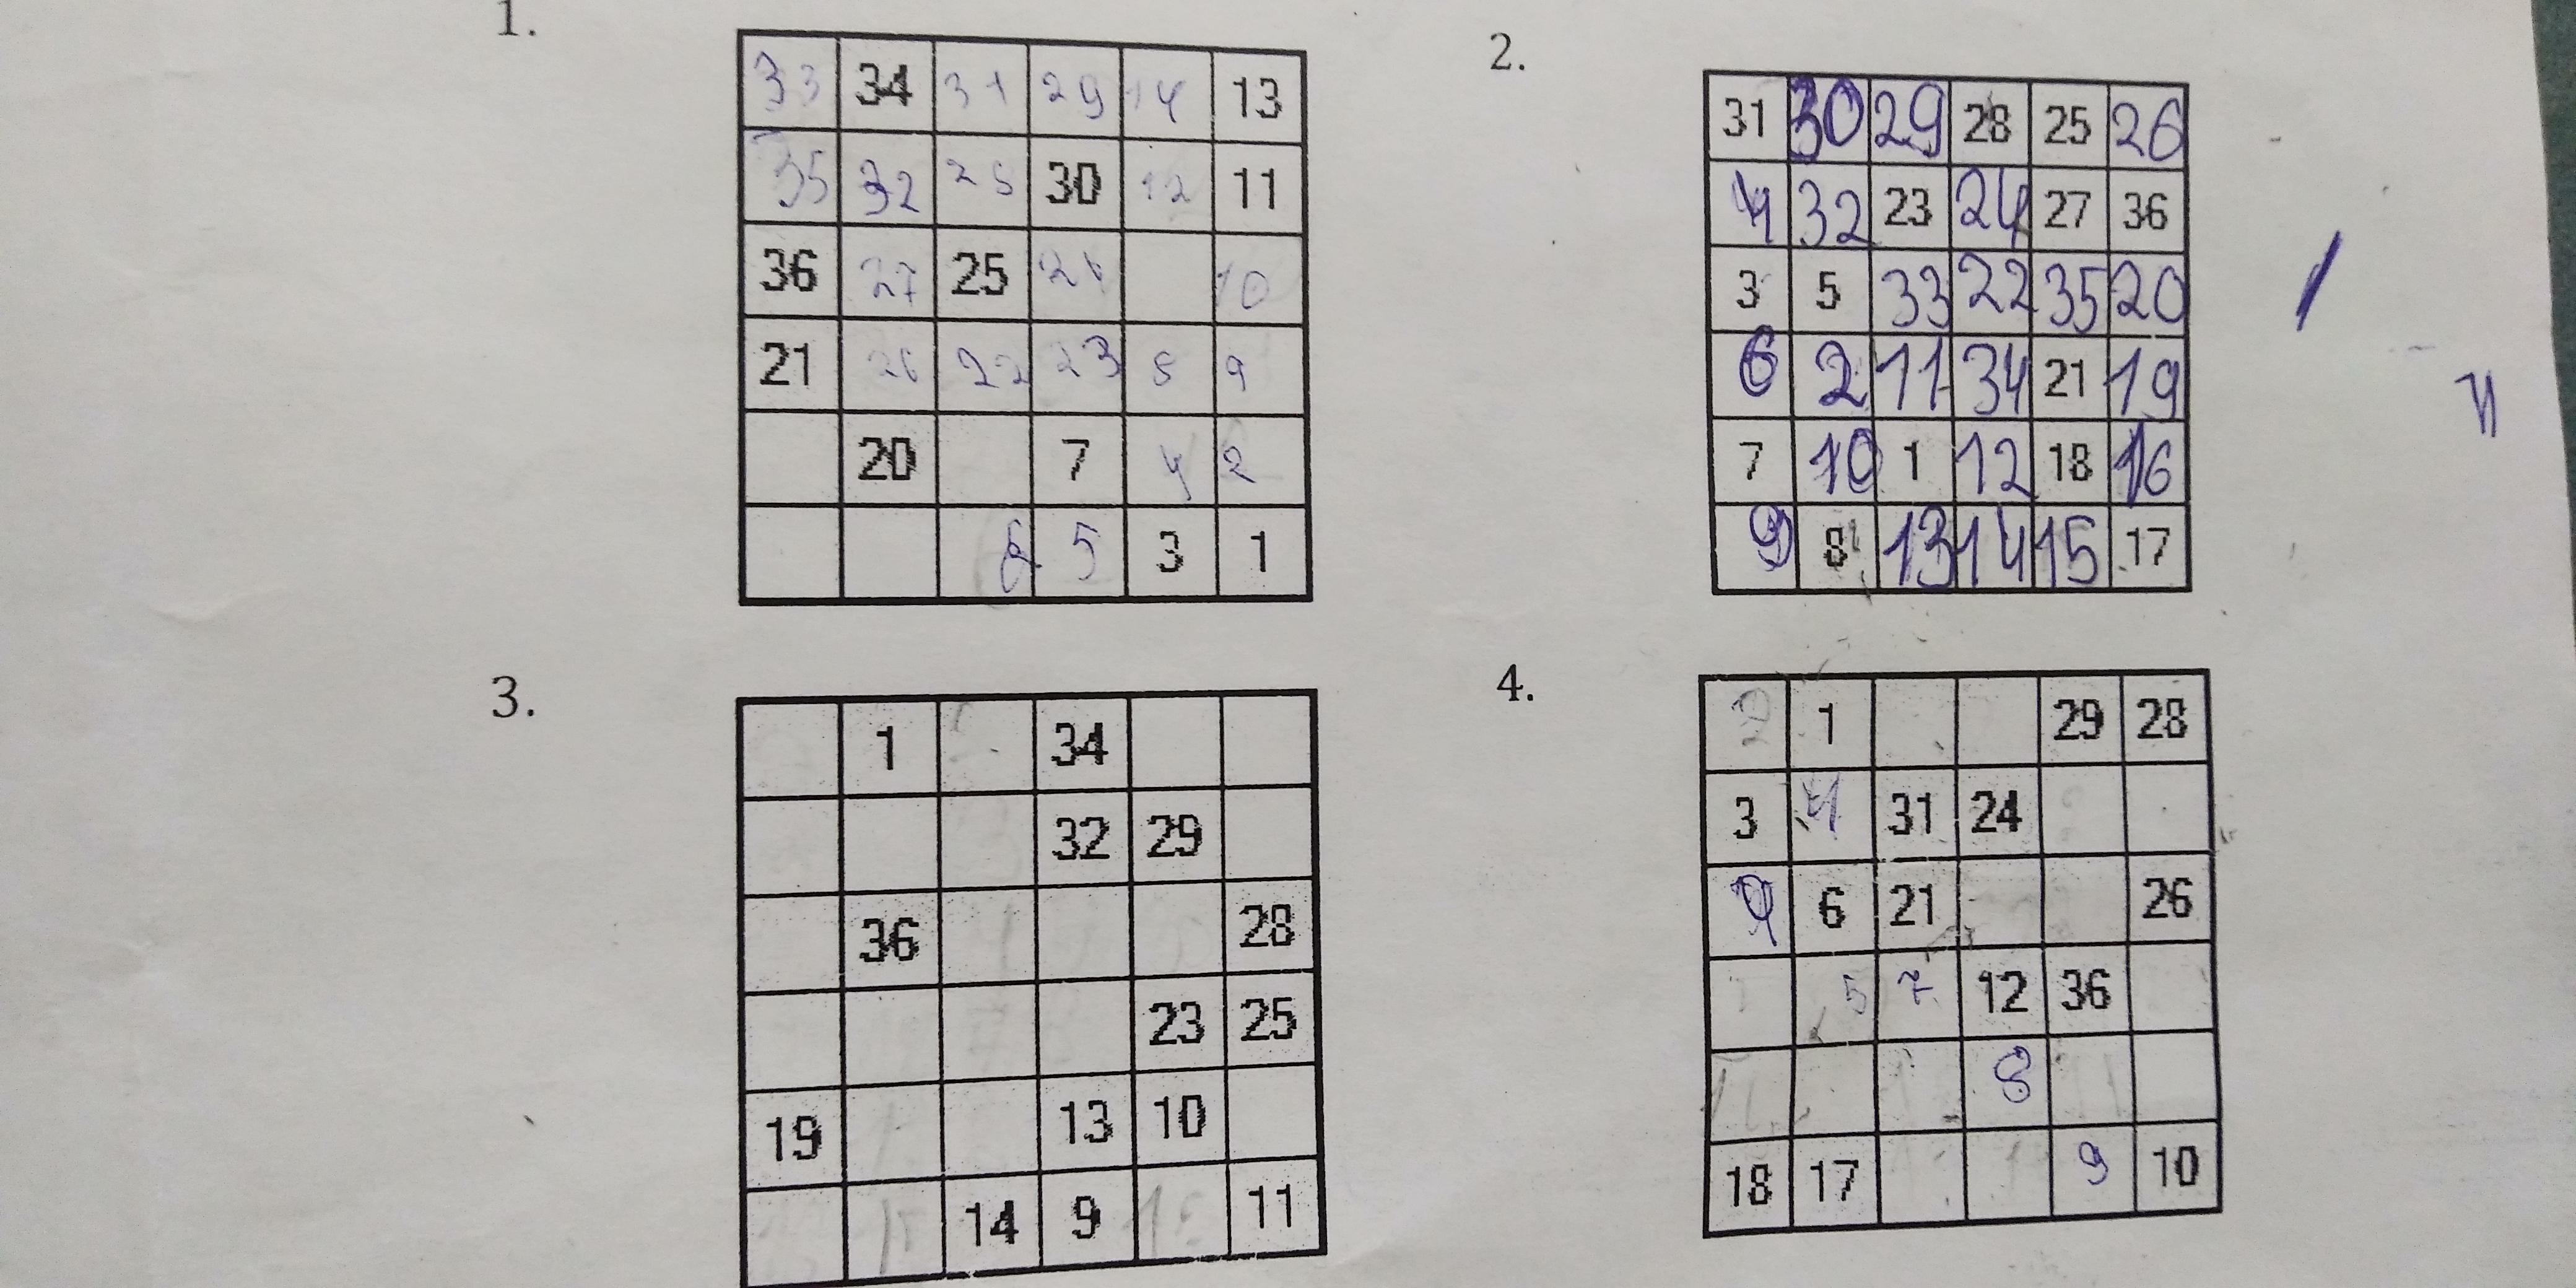 1.
33 34 31 29 14 13
35 32 28 30 12 11
36 27 25 24 10
21 26 22 23 8 9
20 7 4 2
6 5 3 1
2.
31 30 29 28 25 26
4 32 23 24 27 36
3 5 33 22 35 20
6 2 11 34 21 19
7 10 1 12 18 16
9 8 13 14 15 17
3.
1 34
32 29
36 28
23 25
19 13 10
14 9 11
4.
2 1 29 28
3 4 31 24
6 21 26
5 7 12 36
8
18 17 9 10